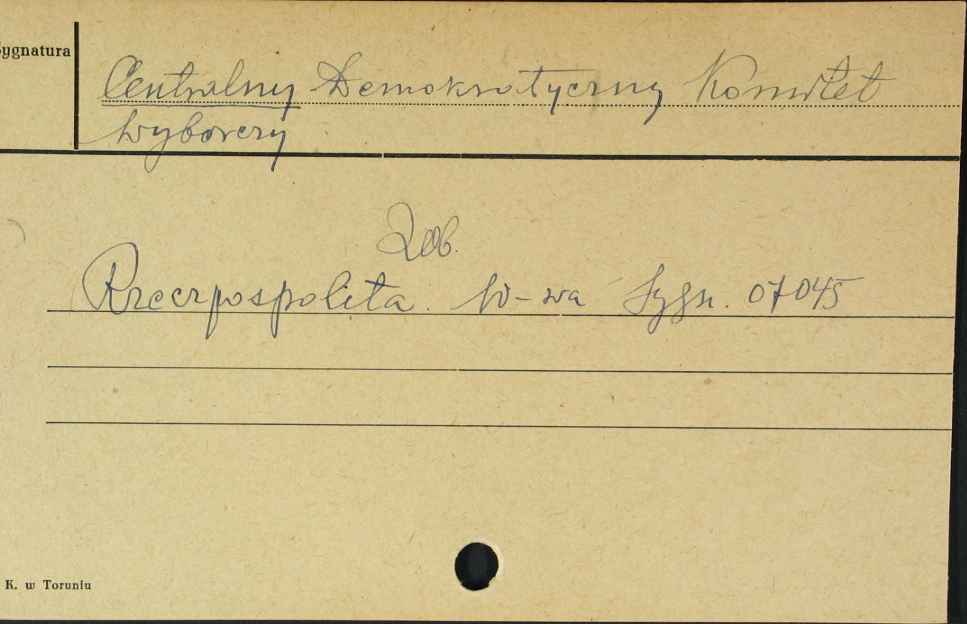 Sygnatura
Centralny Demokratyczny Komitet
Wyborczy
Zob.
Rzeczpospolita. W-wa Sygn. 07045
K. w Toruniu